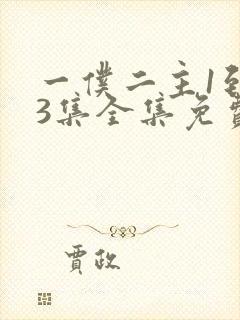 一僕二主1到
3集全集免費
賈政